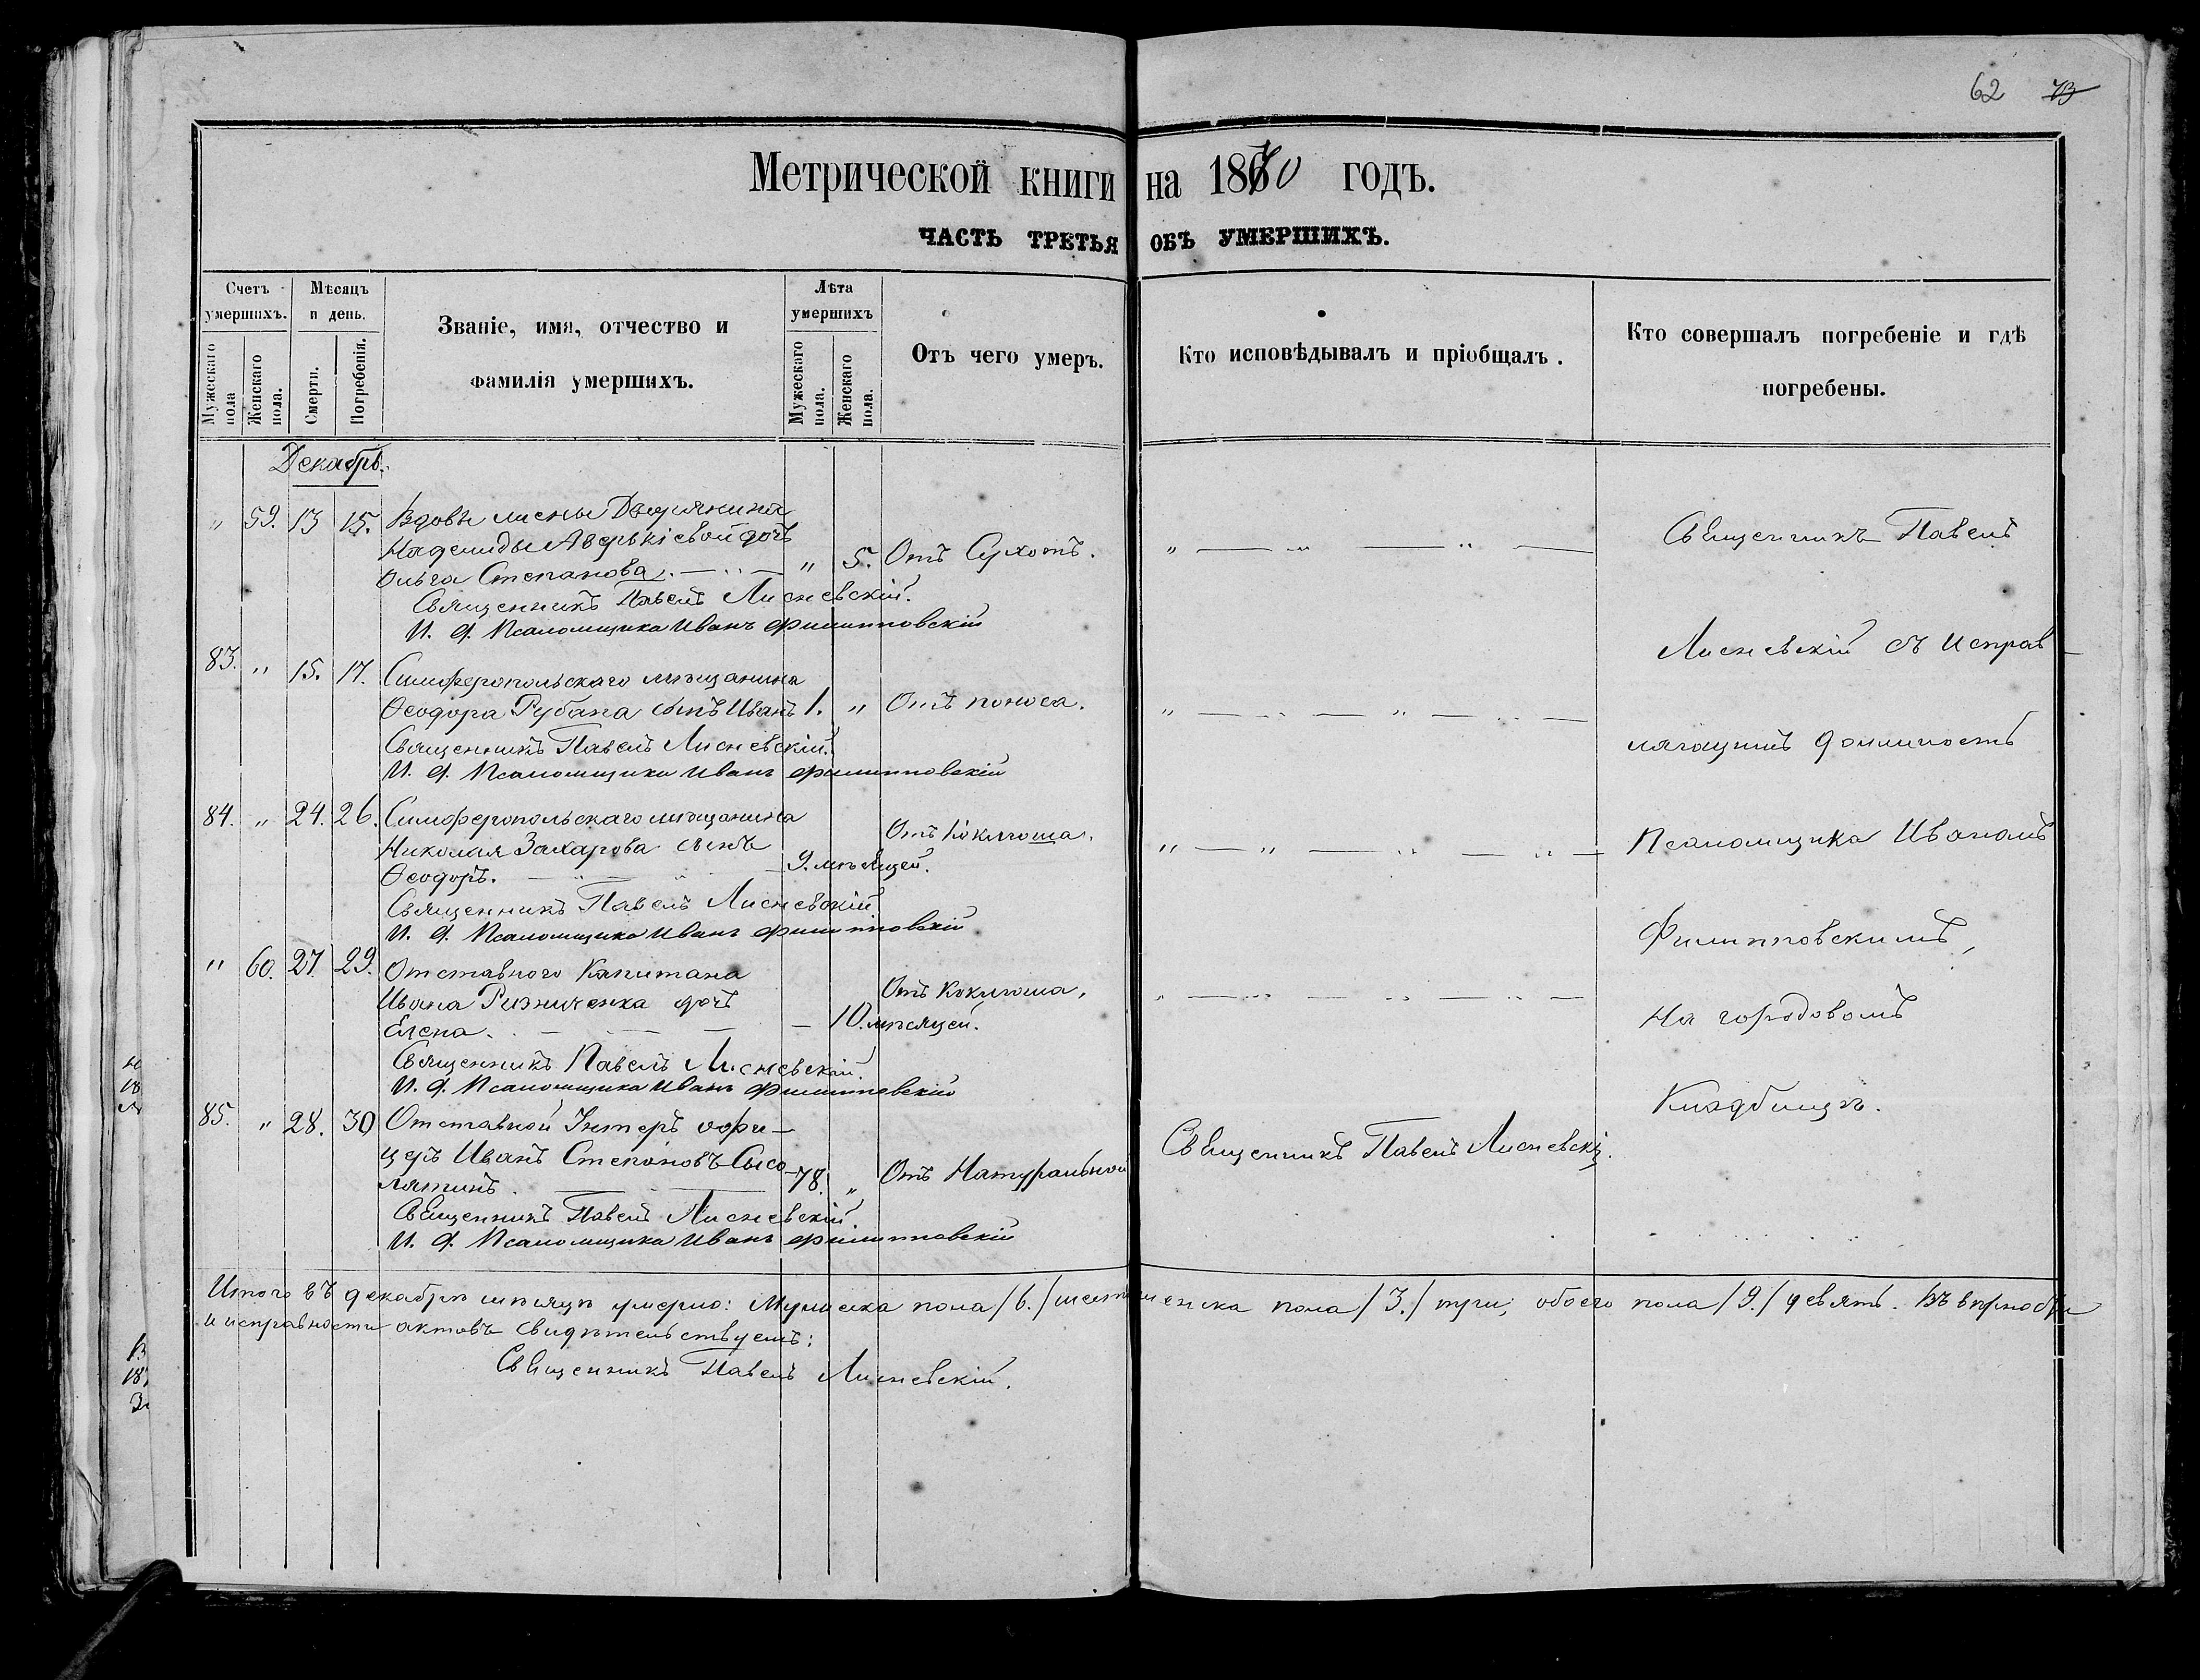 62 73
Метрической книги на 1870 годъ.
ЧАСТЬ ТРЕТЬЯ ОБЪ УМЕРШИХЪ.
Счетъ умершихъ.
Мужескаго пола
Женскаго пола.
Мѣсяцъ и день.
Смерти.
Погребенія.
Званіе, имя, отчество и
фамилія умершихъ.
Лѣта умершихъ
Мужескаго пола.
Женскаго пола.
Отъ чего умеръ.
Кто исповѣдывалъ и пріобщалъ.
Кто совершалъ погребеніе и гдѣ
погребены.
Декабрь.
" 59. 13 15. Вдовы жены Дворянина
Надежды Аверькіевой дочь
Ольга Степанова. " 5. Отъ Сухотъ.
Священникъ Павелъ Лисневскій.
И. д. Псаломщика Иванъ Филипповскій
83. " 15. 17. Симферопольскаго мѣщанина
Ѳеодора Рубана сынъ Иванъ 1. " Отъ поноса.
Священникъ Павелъ Лисневскій.
И. д. Псаломщика Иванъ Филипповскій
84. " 24. 26. Симферопольскаго мѣщанина
Николая Захарова сынъ Отъ Коклюша.
Ѳеодоръ. 9. мѣсяцей.
Священникъ Павелъ Лисневскій
И. д. Псаломщика Иванъ Филипповскій
" 60. 27. 29. Отставного Капитана
Ивана Ризниченка дочь Отъ Коклюша,
Елена. 10. мѣсяцей.
Священникъ Павелъ Лисневскій.
И. д. Псаломщика Иванъ Филипповскій
85. " 28. 30 Отставной Унтеръ офи-
церъ Иванъ Степановъ Сысо- 78. " Отъ Натуральной
лятинъ.
Священникъ Павелъ Лисневскій.
И. д. Псаломщика Иванъ Филипповскій
Священникъ Павелъ Лисневскій.
Священникъ Павелъ
Лисневскій съ исправ-
ляющимъ должность
Псаломщика Иваномъ
Филипповскимъ,
На городовомъ
Кладбищѣ.
Итого въ декабрѣ мѣсяцѣ умерло: Мужеска пола /6./ шесть женска пола /3./ три, обоего пола /9./ девять. Въ вѣрности
и исправности актовъ свидѣтельствуемъ:
Священникъ Павелъ Лисневскій.